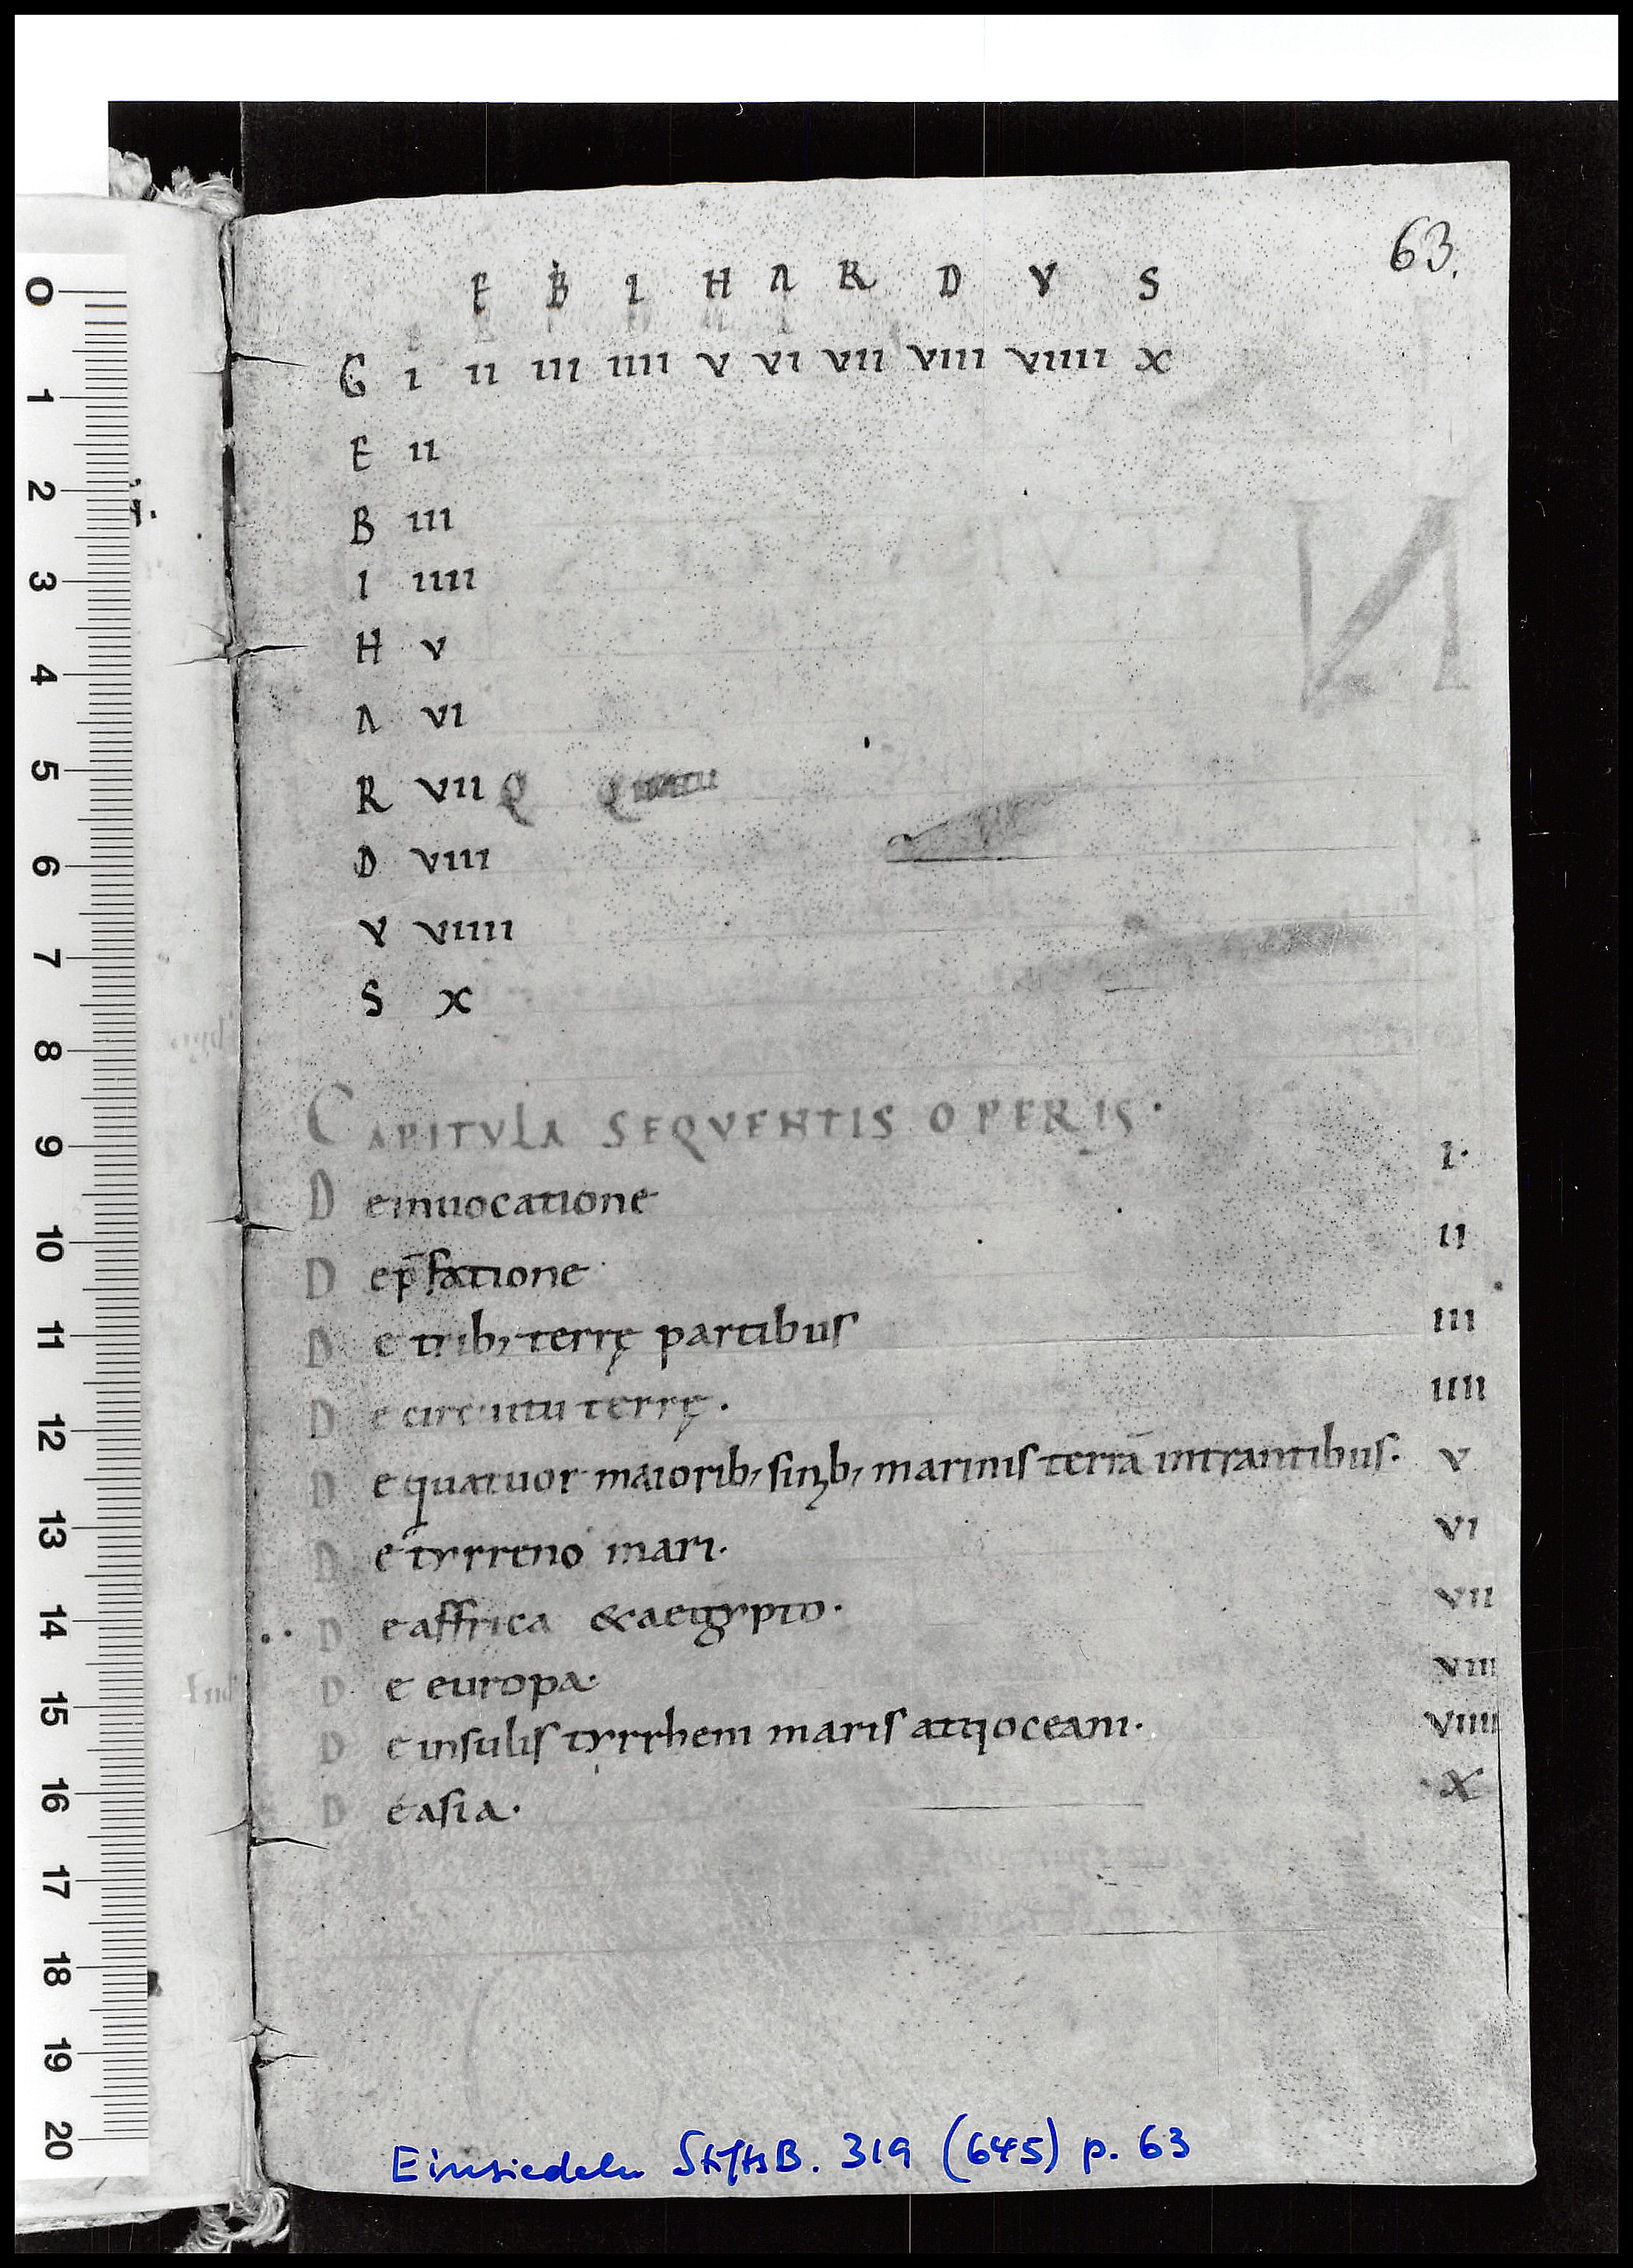 63.
E B I H A R D V S
G I II III IIII V VI VII VIII VIIII X
E II
B III
I IIII
H V
A VI
R VII Q Q
D VIII
V VIIII
S X
CAPITVLA SEQVENTIS OPERIS·
I·
D einuocatione
II
D ep̄fatione
D e trib; terrę partibus III
D e circuitu terrę. IIII
D e quatuor maiorib; sinib; marinis terrā intrantibus. V
D e tyrreno mari. VI
D e affrica & aegypto. VII
D e europa. VIII
D e insulis tyrrheni maris atq oceani. VIIII
D e asia. X
Einsiedeln StiftsB. 319 (645) p. 63
0
1
2
3
4
5
6
7
8
9
10
11
12
13
14
15
16
17
18
19
20